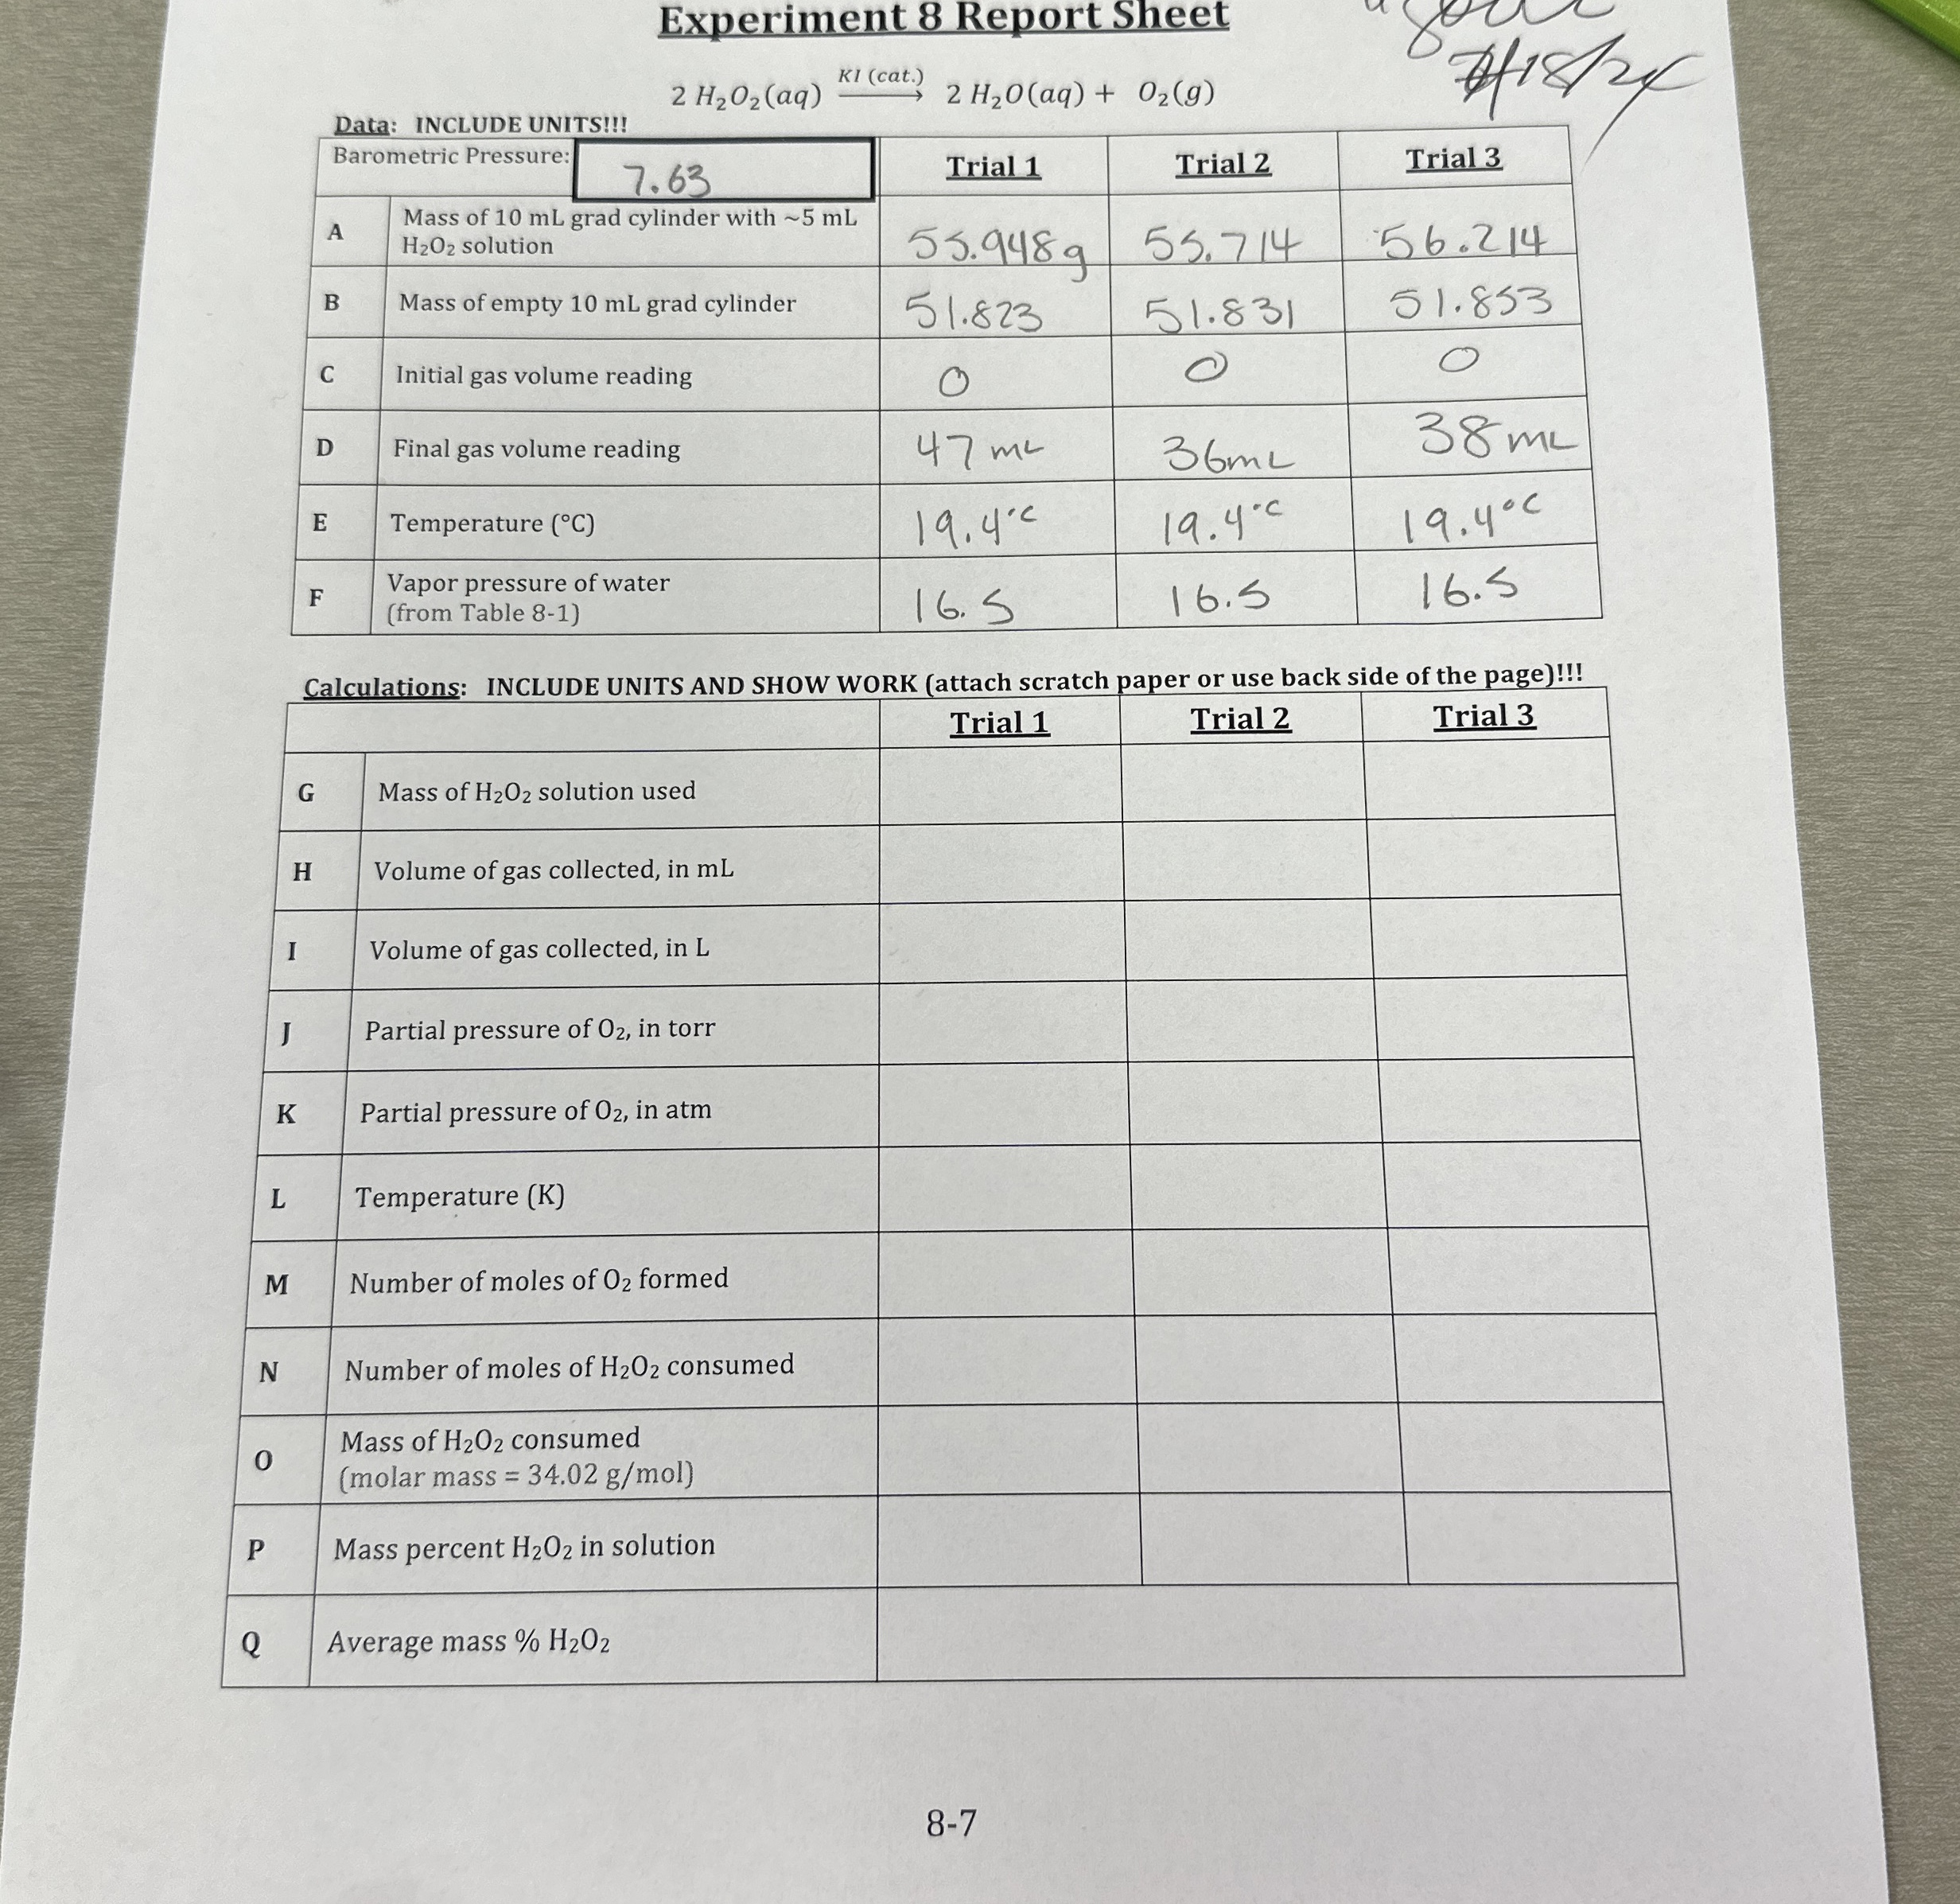 Experiment 8 Report Sheet
7/18/24
2 H₂O₂(aq) KI (cat.) ⟶ 2 H₂O(aq) + O₂(g)
Data: INCLUDE UNITS!!!
Barometric Pressure: 7.63 Trial 1 Trial 2 Trial 3
A Mass of 10 mL grad cylinder with ~5 mL
H₂O₂ solution 55.948g 55.714 56.214
B Mass of empty 10 mL grad cylinder 51.823 51.831 51.853
C Initial gas volume reading 0 0 0
D Final gas volume reading 47 mL 36mL 38mL
E Temperature (°C) 19.4°C 19.4°C 19.4°C
F Vapor pressure of water
(from Table 8-1) 16.5 16.5 16.5
Calculations: INCLUDE UNITS AND SHOW WORK (attach scratch paper or use back side of the page)!!!
Trial 1 Trial 2 Trial 3
G Mass of H₂O₂ solution used
H Volume of gas collected, in mL
I Volume of gas collected, in L
J Partial pressure of O₂, in torr
K Partial pressure of O₂, in atm
L Temperature (K)
M Number of moles of O₂ formed
N Number of moles of H₂O₂ consumed
O Mass of H₂O₂ consumed
(molar mass = 34.02 g/mol)
P Mass percent H₂O₂ in solution
Q Average mass % H₂O₂
8-7